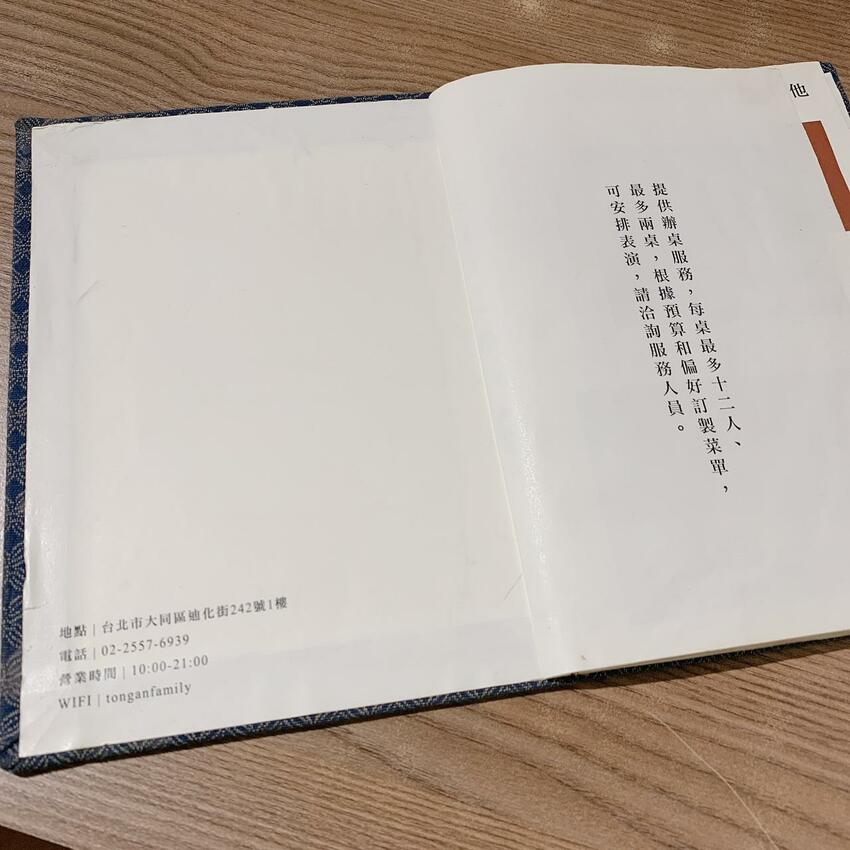 地點 | 台北市大同區迪化街242號1樓
電話 | 02-2557-6939
營業時間 | 10:00-21:00
WIFI | tonganfamily
提供辦桌服務，每桌最多十二人、
最多兩桌，根據預算和偏好訂製菜單，
可安排表演，請洽詢服務人員。
他